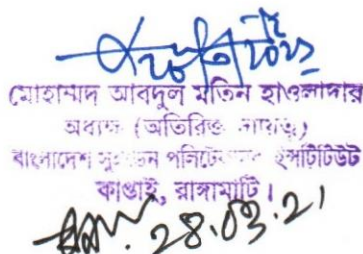 মোহাম্মদ আবদুল মতিন হাওলাদার
অধ্যক্ষ (অতিরিক্ত দায়িত্ব)
বাংলাদেশ সুইডেন পলিটেকনিক ইন্সটিটিউট
কাপ্তাই, রাঙ্গামাটি।
28.03.21